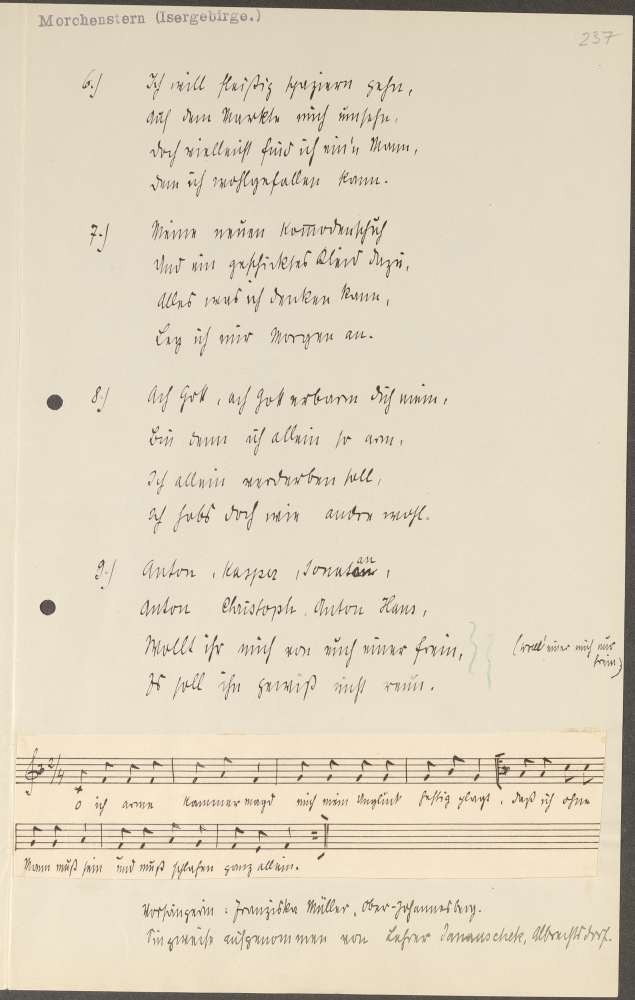 Morchenstern (Isergebirge.)
237
6.) Ich will fleißig spaziern gehn,
Auf dem Markte mich umsehn,
Doch vielleicht find ich ein'n Mann,
Dem ich wohlgefallen kann.
7.) Meine neuen Kom̅odenschuh
Und ein geschicktes Kleid dazu,
Alles was ich denken kann,
Leg ich mir Morgen an.
8.) Ach Gott, ach Gott erbarm dich mein,
Bin denn ich allein so arm,
Ich allein verderben soll,
Ich habs doch wie andre wohl.
9.) Anton, Kasper, Jonatan,
Anton Christoph, Anton Hans,
Wollt ihr mich von euch einer frein,
(Woll' einer mich nur
frein)
Es soll ihn gewiß nicht reun.
2/4
O ich arme Kammermagd mich mein Unglück heftig plagt, daß ich ohne
Mann muß sein und muß schlafen ganz allein.
Vorsängerin: Franziska Müller, Ober-Johannesberg.
Singweise aufgenommen von Lehrer Janauschek, Albrechtsdorf.